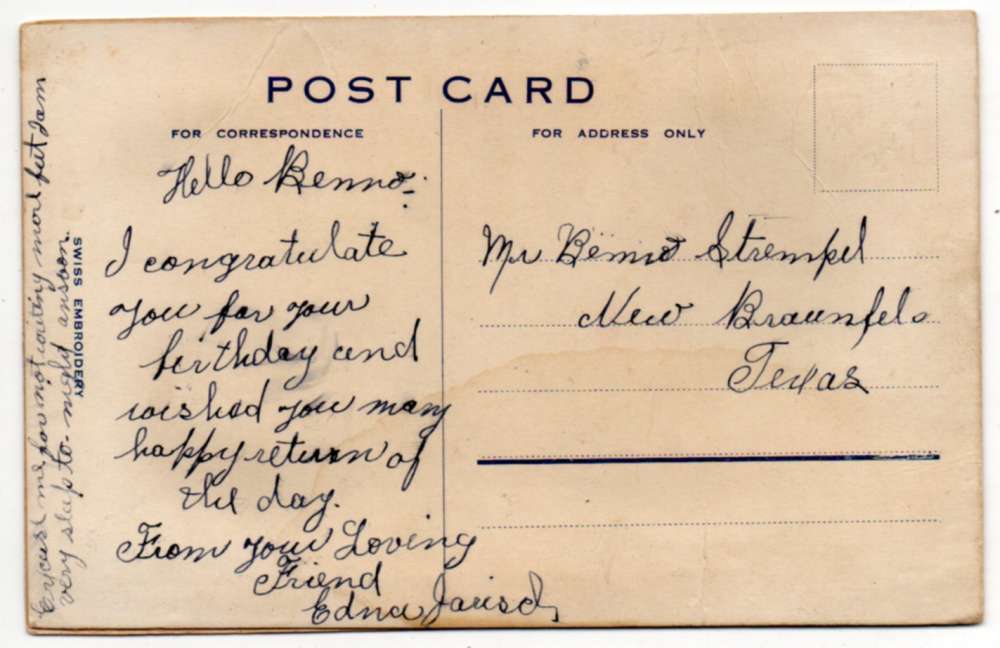 POST CARD
FOR CORRESPONDENCE
FOR ADDRESS ONLY
Hello Benno.
I congratulate
you for your
birthday and
wished you many
happy return of
the day.
From your Loving
Friend
Edna Jarisch
Mr Benno Strempel
New Braunfels
Texas
SWISS EMBROIDERY
me for not writing more but I am
very to-night